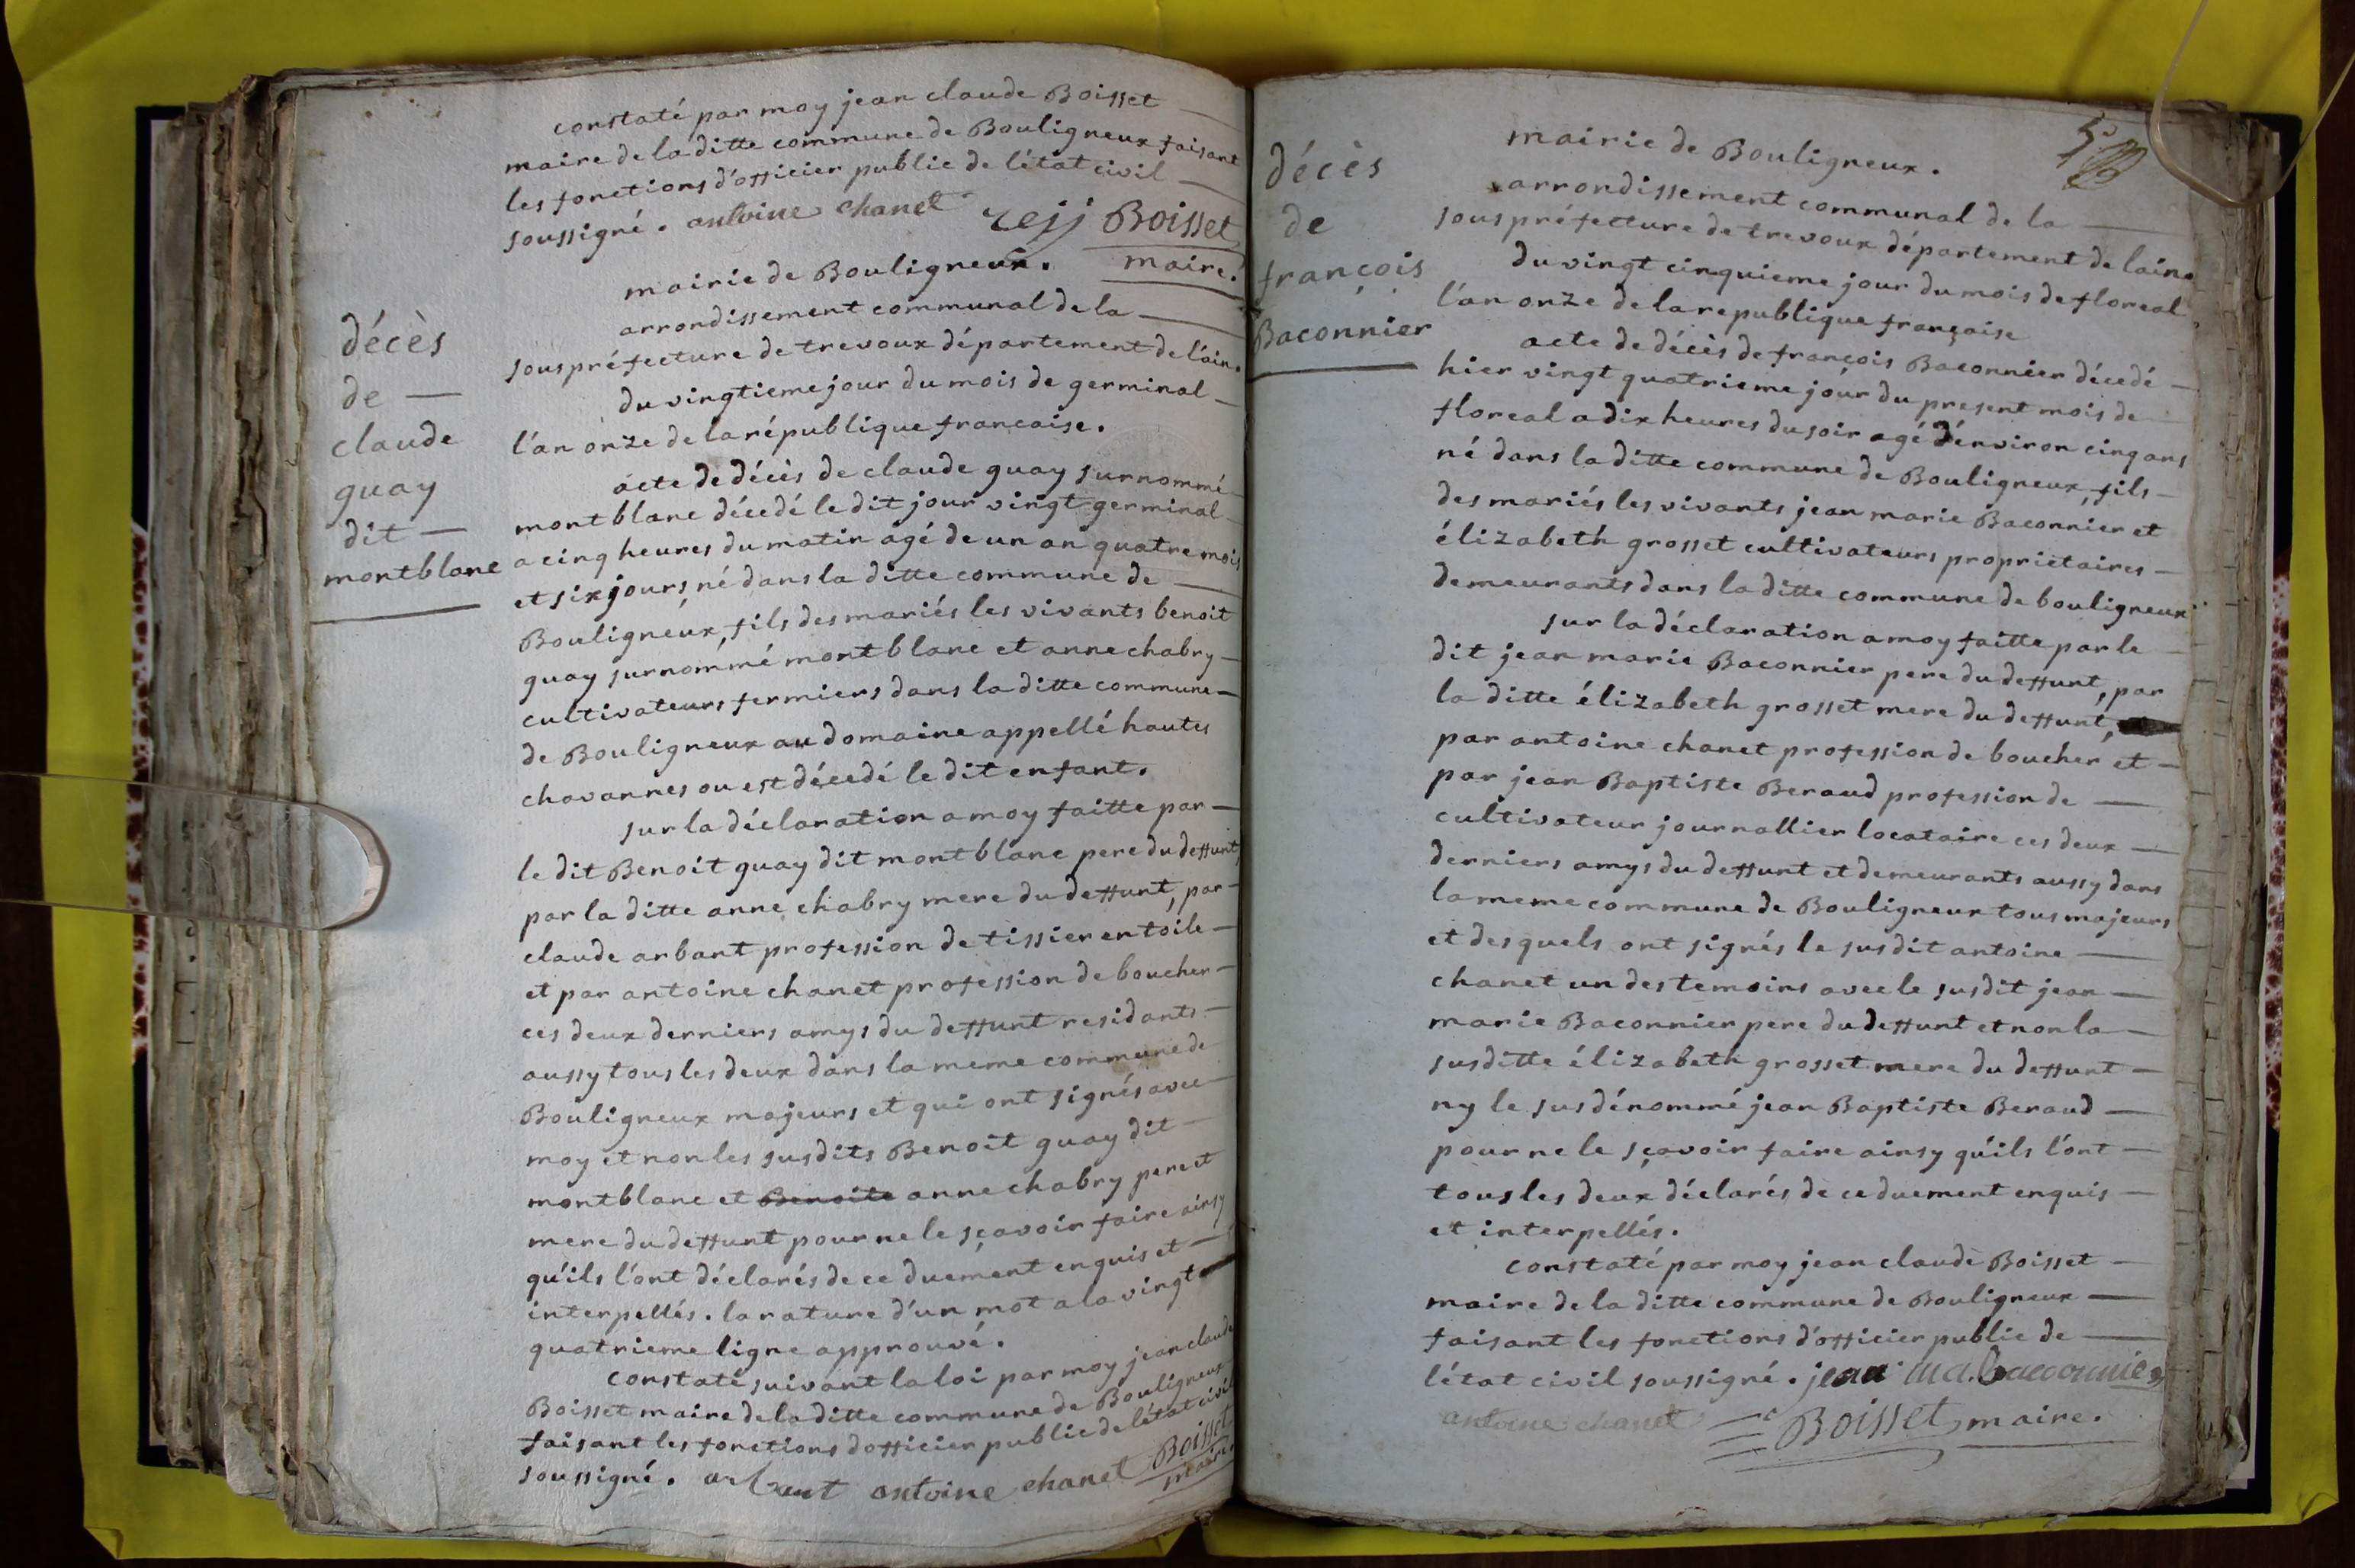 constaté par moy jean claude Boisset
maire de la ditte commune de Bouligneux faisant
les fonctions d'officier public de l'état civil
soussigné. antoine chanet Boisset
maire.
mairie de Bouligneux.
arrondissement communal de la
sous préfecture de trevoux département de l'ain.
du vingtieme jour du mois de germinal
l'an onze de la république francaise.
décès
de
claude
guay
dit
montblanc
acte de décès de claude guay surnommé
montblanc décedé le dit jour vingt germinal
a cinq heures du matin agé de un an quatre mois
et six jours, né dans la ditte commune de
Bouligneux, fils des mariés les vivants benoit
guay surnommé montblanc et anne chabry
cultivateurs fermiers dans la ditte commune
de Bouligneux au domaine appellé hautes
chavannes ou est décedé le dit enfant.
sur la déclaration a moy faitte par
le dit Benoit guay dit montblanc pere du deffunt,
par la ditte anne chabry mere du deffunt, par
claude arbant profession de tissier en toile
et par antoine chanet profession de boucher
ces deux derniers amys du deffunt residants
aussy tous les deux dans la meme commune de
Bouligneux majeurs et qui ont signés avec
moy et non les susdits Benoit guay dit
montblanc et Benoite anne chabry pere et
mere du deffunt pour ne le sçavoir faire ainsy
qu'ils l'ont déclarés de ce duement enquis et
interpellés. la rature d'un mot a la vingt
quatrieme ligne approuvé.
constaté suivant la loi par moy jean claude
Boisset maire de la ditte commune de Bouligneux
faisant les fonctions d'officier public de l'état civil
soussigné. arbant antoine chanet Boisset
maire.
décès
de
françois
Baconnier
mairie de Bouligneux.
arrondissement communal de la
sous préfecture de trevoux département de lain
du vingt cinquieme jour du mois de floreal
l'an onze de la republique française
acte de décès de françois Baconnier décedé
hier vingt quatrieme jour du present mois de
floreal a dix heures du soir agé d'environ cinq ans
né dans la ditte commune de Bouligneux, fils
des mariés les vivants jean marie Baconnier et
élizabeth grosset cultivateurs proprietaires
demeurants dans la ditte commune de bouligneux
sur la déclaration a moy faitte par le
dit jean marie Baconnier pere du deffunt, par
la ditte élizabeth grosset mere du deffunt,
par antoine chanet profession de boucher et
par jean Baptiste Beraud profession de
cultivateur journallier locataire ces deux
derniers amys du deffunt et demeurants aussy dans
la meme commune de Bouligneux tous majeurs
et desquels ont signés le susdit antoine
chanet un des temoins avec le susdit jean
marie Baconnier pere du deffunt et non la
susditte élizabeth grosset mere du deffunt
ny le susdénommé jean Baptiste Beraud
pour ne le sçavoir faire ainsy qu'ils l'ont
tous les deux déclarés de ce duement enquis
et interpellés.
constaté par moy jean claude Boisset
maire de la ditte commune de Bouligneux
faisant les fonctions d'officier public de
l'état civil soussigné. jean ma. baconnier
antoine chanet Boisset, maire.